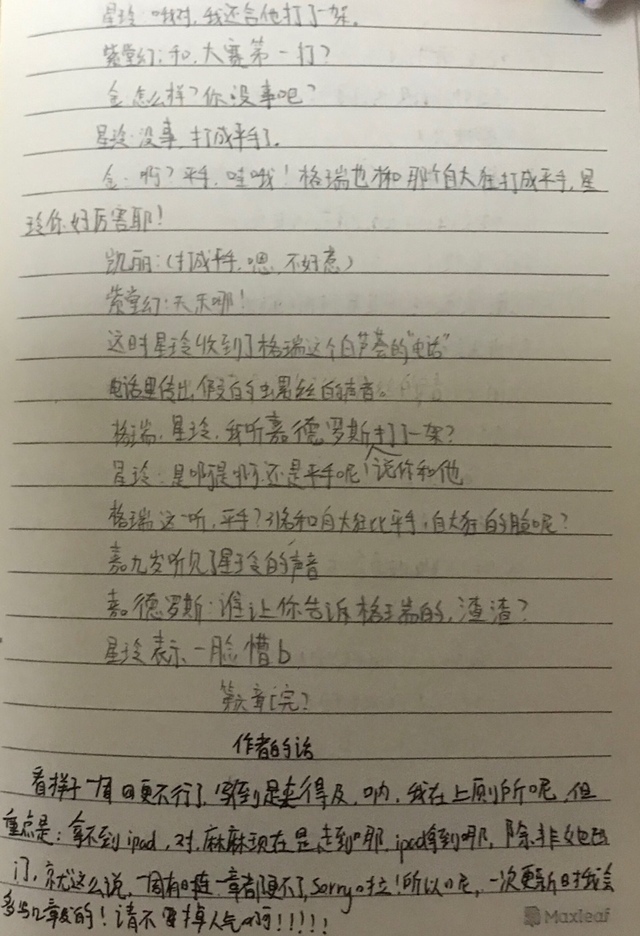 星玲:哦对,我还合他打了一架。
紫堂幻:和,大赛第一打?
金:怎么样?你没事吧?
星玲:没事,打成平手了。
金:啊?平手,哇哦!格瑞也才和那个自大狂打成平手,星
玲你好厉害耶!
凯丽:(打成平手,嗯,不好惹)
紫堂幻:天呐!
这时星玲收到了格瑞这个白芦荟的"电话"
电话里传出假文的声音。
格瑞:星玲,我听嘉德罗斯说你和他打了一架?
星玲:是啊是啊,还是平手呢!
格瑞这一听,平手?和自大狂比平手,自大狂的脸呢?
嘉九岁听见了星玲的声音
嘉德罗斯:谁让你告诉格瑞的,渣渣?
星玲表示一脸懵b
第六章完?
作者的话
看样子一周日更不行了,写倒是来得及,呐,我在上厕所呢,但
重点是:拿不到ipad,对,麻麻现在是,走到哪,ipad拿到哪,除非她出
门,就这么说,一周有时连一章都更不了,sorry啦!所以呢,一次更新时我会
多写几章发的!请不要掉人气啊!!!!!
Maxleaf